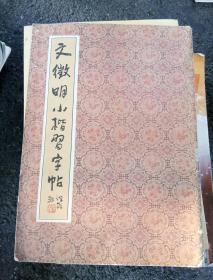 文徵明小楷習字帖